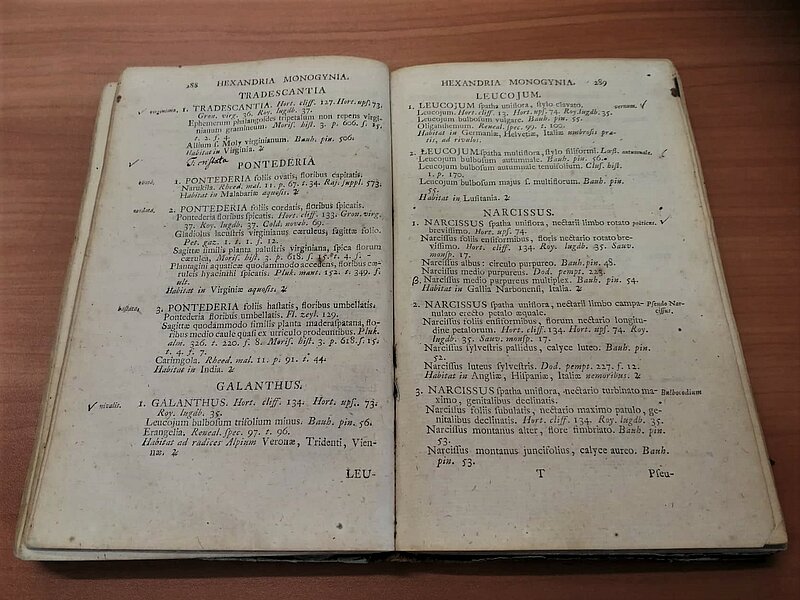 288 HEXANDRIA MONOGYNIA.
TRADESCANTIA
virginiana. 1. TRADESCANTIA. Hort. cliff. 127. Hort. upſ. 73.
Gron. virg. 36. Roy. lugdb. 37.
Ephemerum phalangoides tripetalum non repens virgi-
nianum gramineum. Moriſ. hiſt. 3. p. 606. ſ. 15.
t. 2. f. 4.
Allium ſ. Moly virginianum. Bauh. pin. 506.
Habitat in Virginia. ♃
PONTEDERIA
ovata. 1. PONTEDERIA foliis ovatis, floribus capitatis.
Narukila. Rheed. mal. 11. p. 67. t. 34. Raj. ſuppl. 573.
Habitat in Malabariæ aquoſis. ♃
cordata. 2. PONTEDERIA foliis cordatis, floribus ſpicatis.
Pontederia floribus ſpicatis. Hort. cliff. 133. Gron. virg.
37. Roy. lugdb. 37. Cold. noveb. 69.
Gladiolus lacuſtris virginianus cæruleus, ſagittæ folio.
Pet. gaz. 1. t. 1. f. 12.
Sagittæ ſimilis planta paluſtris virginiana, ſpica florum
cærulea. Moriſ. hiſt. 3. p. 618. ſ. 15. t. 4. f.
Plantagini aquaticæ quodammodo accedens, floribus cæ-
ruleis hyacinthi ſpicatis. Pluk. mant. 152. t. 349. f.
ult.
Habitat in Virginiæ aquoſis. ♃
haſtata. 3. PONTEDERIA foliis haſtatis, floribus umbellatis.
Pontederia floribus umbellatis. Fl. zeyl. 129.
Sagittæ quodammodo ſimilis planta maderaſpatana, flo-
ribus medio caule quaſi ex utriculo prodeuntibus. Pluk.
alm. 326. t. 220. f. 8. Moriſ. hiſt. 3. p. 618. ſ. 15.
t. 4. f. 7.
Carimgola. Rheed. mal. 11. p. 91. t. 44.
Habitat in India. ♃
GALANTHUS.
nivalis. 1. GALANTHUS. Hort. cliff. 134. Hort. upſ. 73.
Roy. lugdb. 35.
Leucojum bulboſum trifolium minus. Bauh. pin. 56.
Erangelia. Reneal. ſpec. 97. t. 96.
Habitat ad radices Alpium Veronæ, Tridenti, Vien-
næ. ♃
LEU-
HEXANDRIA MONOGYNIA. 289
LEUCOJUM.
1. LEUCOJUM ſpatha uniflora, ſtylo clavato. vernum.
Leucojum. Hort. cliff. 13. Hort. upſ. 74. Roy. lugdb. 35.
Leucojum bulboſum vulgare. Bauh. pin. 55.
Oliganthemum. Reneal. ſpec. 99. t. 100.
Habitat in Germaniæ, Helvetiæ, Italiæ umbroſis pra-
tis, ad rivulos.
2. LEUCOJUM ſpatha multiflora, ſtylo filiformi. autumnale.
Leucojum bulboſum autumnale. Bauh. pin. 56.
Leucojum bulboſum autumnale tenuifolium. Cluſ. hiſt.
1. p. 170.
Leucojum bulboſum majus ſ. multiflorum. Bauh. pin.
55.
Habitat in Luſitania. ♃
NARCISSUS.
1. NARCISSUS ſpatha uniflora, nectarii limbo rotato poëticus.
breviſſimo. Hort. upſ. 74.
Narciſſus foliis enſiformibus, floris nectario rotato bre-
viſſimo. Hort. cliff. 134. Roy. lugdb. 35. Sauv.
monſp. 17.
Narciſſus albus: circulo purpureo. Bauh. pin. 48.
Narciſſus medio purpureus. Dod. pempt. 223.
β. Narciſſus medio purpureus multiplex. Bauh. pin. 54.
Habitat in Gallia Narbonenſi, Italia. ♃
2. NARCISSUS ſpatha uniflora, nectarii limbo campa- Pſeudo Nar-
nulato erecto petalo æquale. ciſſus.
Narciſſus foliis enſiformibus, florum nectario longitu-
dine petalorum. Hort. cliff. 134. Hort. upſ. 74. Roy.
lugdb. 35. Sauv. monſp. 17.
Narciſſus ſylveſtris pallidus, calyce luteo. Bauh. pin.
52.
Narciſſus luteus ſylveſtris. Dod. pempt. 227. f. 12.
Habitat in Angliæ, Hiſpaniæ, Italiæ nemoribus. ♃
3. NARCISSUS ſpatha uniflora, nectario turbinato ma- Bulbocodium
ximo, genitalibus declinatis.
Narciſſus foliis ſubulatis, nectario maximo patulo, ge-
nitalibus declinatis. Hort. cliff. 134. Roy. lugdb. 35.
Narciſſus montanus alter, flore fimbriato. Bauh. pin.
53.
Narciſſus montanus juncifolius, calyce aureo. Bauh.
pin. 53.
T Pſeu-